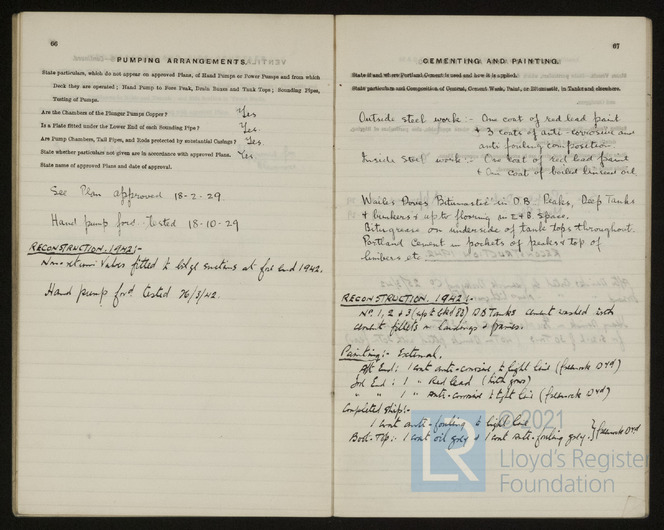 66
PUMPING ARRANGEMENTS.
State particulars, which do not appear on approved Plans, of Hand Pumps or Power Pumps and from which
Deck they are operated; Hand Pump to Fore Peak, Drain Boxes and Tank Tops; Sounding Pipes,
Testing of Pumps.
Are the Chambers of the Plunger Pumps Copper? Yes
Is a Plate fitted under the Lower End of each Sounding Pipe? Yes.
Are Pump Chambers, Tail Pipes, and Rods protected by substantial Casings? Yes.
State whether particulars not given are in accordance with approved Plans. Yes
State name of approved Plans and date of approval.
See Plan approved 18-2-29.
Hand pump ford. Tested 18-10-29
RECONSTRUCTION. 1942:-
Non-return valves fitted to bilge suctions at for end 1942.
Hand pump ford tested 26/3/42.
67
CEMENTING AND PAINTING.
State if and where Portland Cement is used and how it is applied.
State particulars and Composition of General, Cement Wash, Paint, or Bitumastic, in Tanks and elsewhere.
Outside steel work :- One coat of red lead paint
& 3 coats of anti-corrosive and
anti fouling composition.
Inside steel work :- One coat of red lead paint
& One coat of boiled linseed oil.
Bitumastic in D.B. Peaks, Deep Tanks
& bunkers & up to flooring in E & B Space.
Bitugrease on underside of tank tops throughout.
Portland Cement in pockets of peaks & top of
limbers etc.
RECONSTRUCTION. 1942:-
No. 1, 2 & 3 D.B Tanks cement washed with
cement fillets on landings & frames.
Painting:- External.
Aft End: 1 coat anti-corrosive to light line
For End: 1 " Red lead
" " 1 " Anti-corrosive to light line
Completed ship:-
1 coat anti-fouling to light line
Boot-Top: 1 coat oil grey & 1 coat anti-fouling grey.
© 2021
LR
Lloyd's Register
Foundation